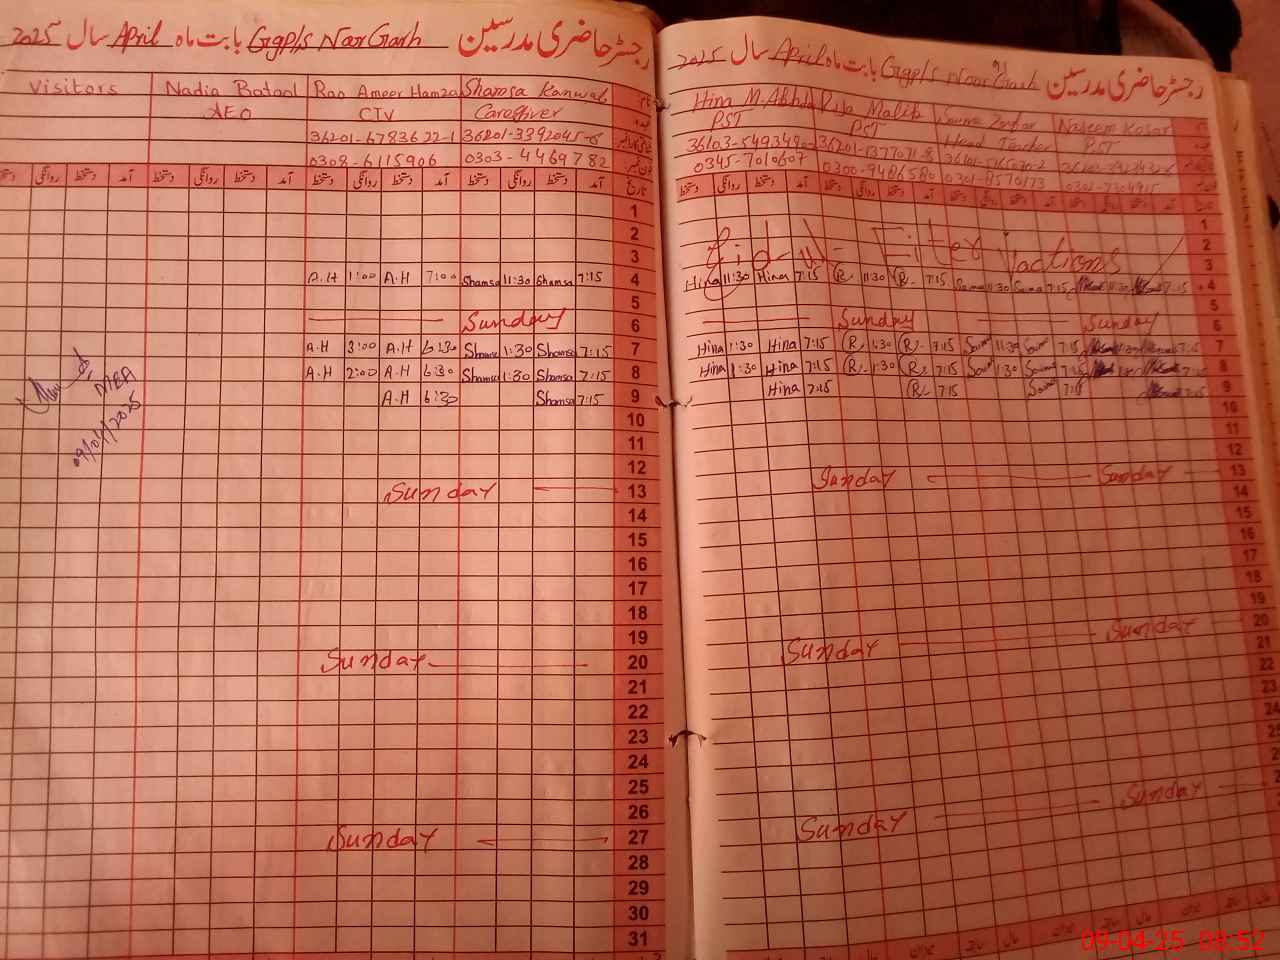 رجسٹر حاضری مدرسین Ggpls Noor Garh بابت ماہ April سال 2025
Visitors
Nadia Batool
AEO
Rao Ameer Hamza
CTV
36201-6783622-1
0308-6115906
Shamsa Kanwal
Caregiver
36201-3392045-6
0303-4469782
دستخط روانگی دستخط آمد دستخط روانگی دستخط آمد دستخط روانگی دستخط آمد تاریخ
1
2
3
A.H 1:00 A.H 7:00 Shamsa 11:30 Shamsa 7:15 4
5
Sunday 6
A.H 3:00 A.H 6:30 Shamsa 1:30 Shamsa 7:15 7
A.H 2:00 A.H 6:30 Shamsa 1:30 Shamsa 7:15 8
A.H 6:30 Shamsa 7:15 9
MEA
09/04/2025
10
11
12
Sunday 13
14
15
16
17
18
19
Sunday 20
21
22
23
24
25
26
Sunday 27
28
29
30
31
رجسٹر حاضری مدرسین Ggpls Noor Garh بابت ماہ April سال 2025
Hina M.
PST
0345-7010607
PST
0300-9486580
Head Teacher
Naseem Kosar
PST
0301-7304915
دستخط روانگی دستخط آمد
1
Eid ul Fiter Vactions 2
3
Hina 11:30 Hina 7:15 R. 11:30 R. 7:15 Saima 11:30 Saima 7:15 11:30 7:15 4
5
Sunday Sunday 6
Hina 1:30 Hina 7:15 R. 1:30 R. 7:15 7:15 7:15 7
Hina 1:30 Hina 7:15 R. 1:30 R. 7:15 1:30 7:15 7:15 8
Hina 7:15 R. 7:15 Saima 7:15 7:15 9
10
11
12
Sunday Sunday 13
14
15
16
17
18
19
Sunday Sunday 20
21
22
23
24
Sunday Sunday
09-04-25 08:52